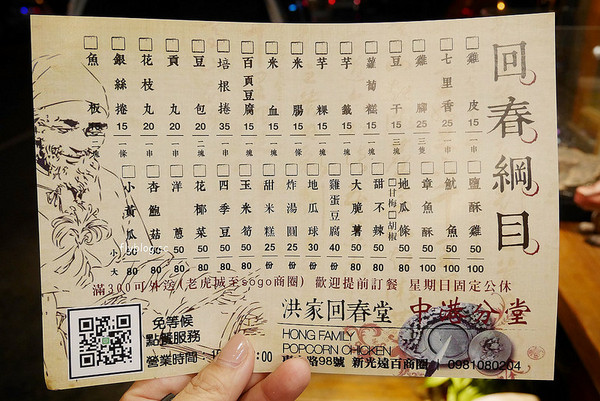 回春綱目
雞皮 15 一串
七里香 25 一串
雞腱 25 一串
豆干 15 三塊
蘿蔔糕 15 一塊
芋籤 15 一塊
芋粿 15 一塊
米腸 15 一條
米血 15 一塊
百頁豆腐 15 一塊
培根捲 35 一串
豆包 20 一塊
貢丸 20 一串
花枝丸 20 一串
銀絲捲 15 一條
魚板 15 二塊
鹽酥雞 50
魷魚 100
章魚酥 100
地瓜條 50 80
□甘梅□胡椒
甜不辣 50 80
大脆薯 50 80
雞蛋豆腐 40 份
地瓜球 30 份
炸湯圓 25 份
甜米糕 25 份
玉米筍 50 80
四季豆 50 80
花椰菜 50 80
洋蔥 50 80
杏鮑菇 50 80
小黃瓜 50 80
小
大
滿300可外送(老虎城至sogo商圈) 歡迎提前訂餐 星期日固定公休
免等候
點餐服務
營業時間:
:00
洪家回春堂 中港分堂
HONG FAMILY
POPCORN CHICKEN
路98號 新光遠百商圈 0981080204